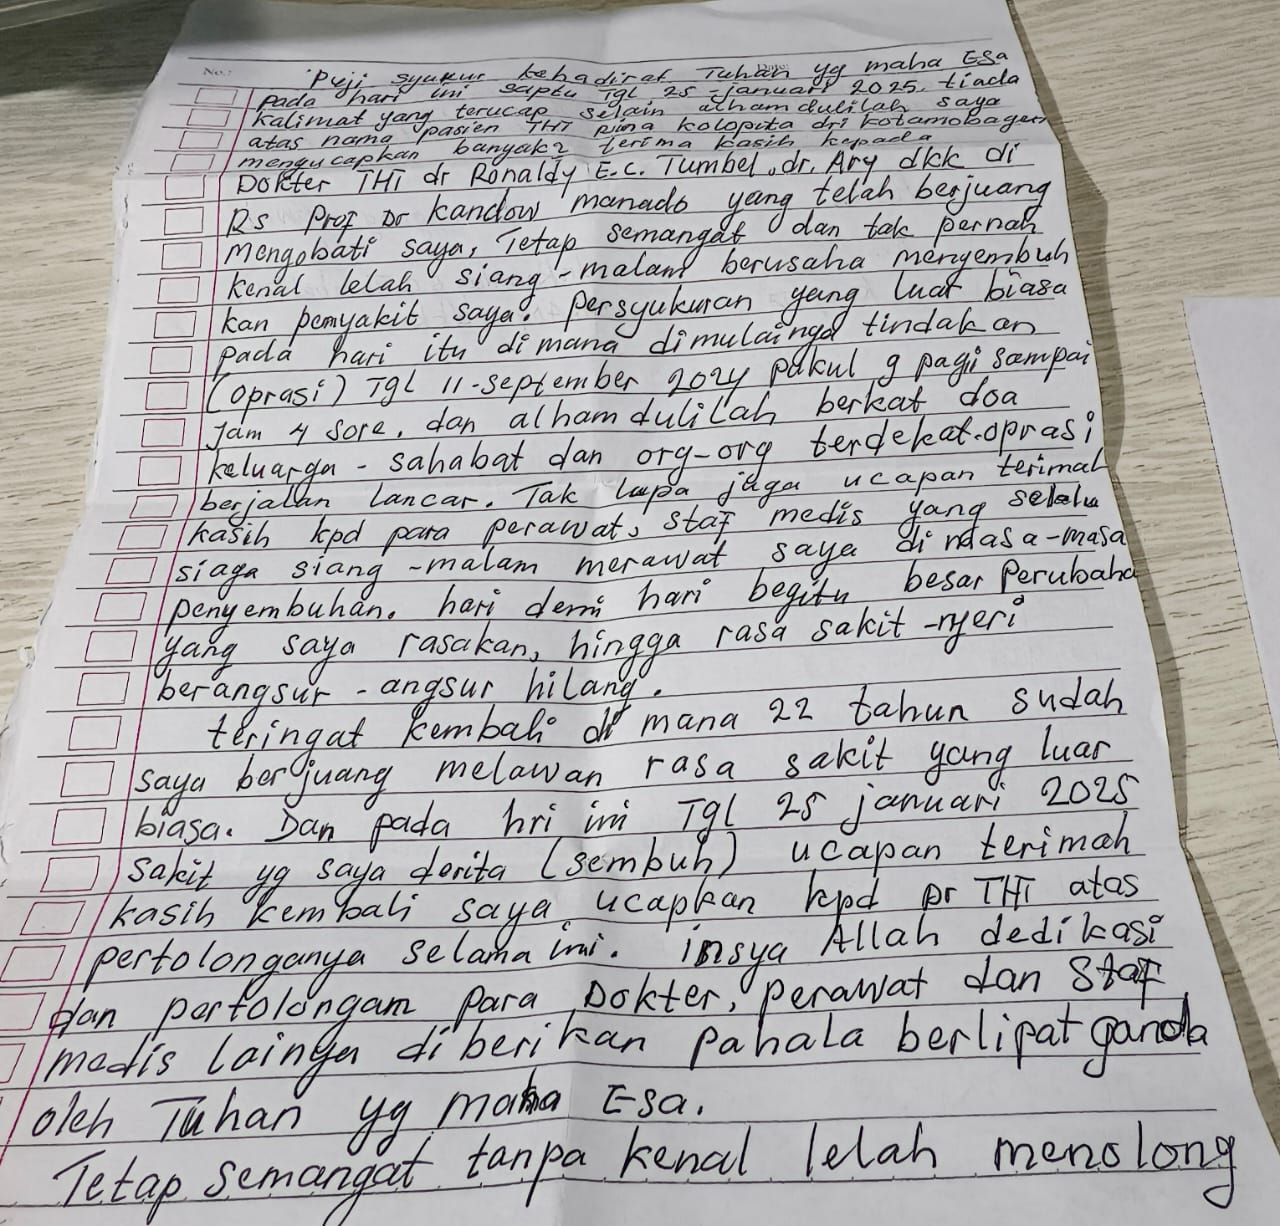 No.:
Puji syukur kehadirat Tuhan yg maha Esa
pada hari ini saptu Tgl 25 -januari 2025. tiada
kalimat yang terucap selain alhamdulilah saya
atas nama pasien THT kolopita dri kotamobagu
mengucapkan banyak2 terima kasih kepada
Dokter THT dr Ronaldy E.C. Tumbel, dr. Ary dkk di
Rs Prof Dr kandow manado yang telah berjuang
mengobati saya, Tetap semangat dan tak pernah
kenal lelah siang -malam berusaha menyembuh
kan pemyakit saya. persyukuran yang luar biasa
pada hari itu di mana dimulainya tindakan
(oprasi) Tgl 11-september 2024 pukul 9 pagi sampai
jam 4 sore. dan alhamdulilah berkat doa
keluarga - sahabat dan org-org terdekat.oprasi
berjalan lancar. Tak lupa juga ucapan terimah
kasih kpd para perawat, staf medis yang selalu
siaga siang -malam merawat saya di masa-masa
penyembuhan. hari demi hari begitu besar Perubaha
yang saya rasakan, hingga rasa sakit -nyeri
berangsur - angsur hilang.
teringat kembali di mana 22 tahun sudah
saya berjuang melawan rasa sakit yang luar
biasa. Dan pada hri ini Tgl 25 januari 2025
sakit yg saya derita (sembuh) ucapan terimah
kasih kembali saya ucapkan kpd Dr THT atas
pertolonganya selama ini. insya Allah dedikasi
dan pertolongam para Dokter, perawat dan Staf
medis lainya di berikan pahala berlipat ganda
oleh Tuhan yg maha Esa.
Tetap semangat tanpa kenal lelah menolong